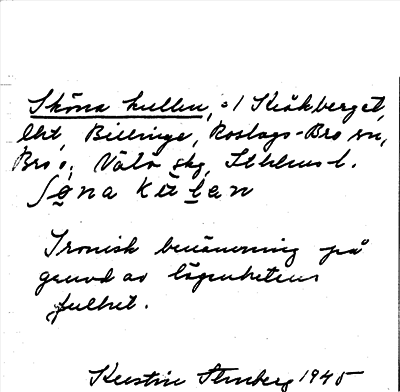 Sköna kullen, el Kråkberget,
lht, Billinge, Roslags-Bro sn,
Bro o. Väto skg, Sthlms l.
Ʃøna kɯlen
Ironisk benämning på
grund av lägenhetens
fulhet.
Kerstin Stenberg 1945